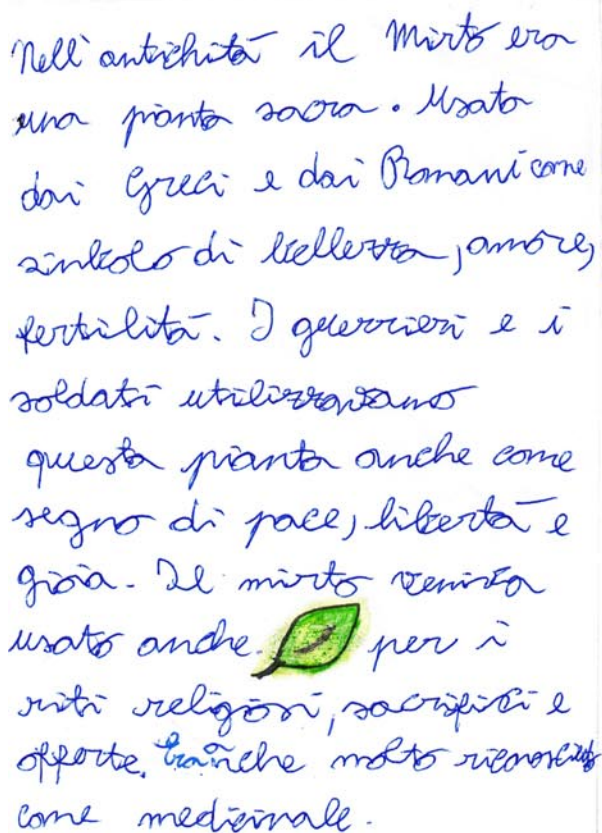 Nell'antichità il Mirto era
una pianta sacra. Usata
dai Greci e dai Romani come
simbolo di bellezza, amore,
fertilità. I guerrieri e i
soldati utilizzavano
questa pianta anche come
segno di pace, libertà e
gioia. Il mirto veniva
usato anche per i
riti religiosi, sacrifici e
offerte. Era anche molto riconosciuto
come medicinale.